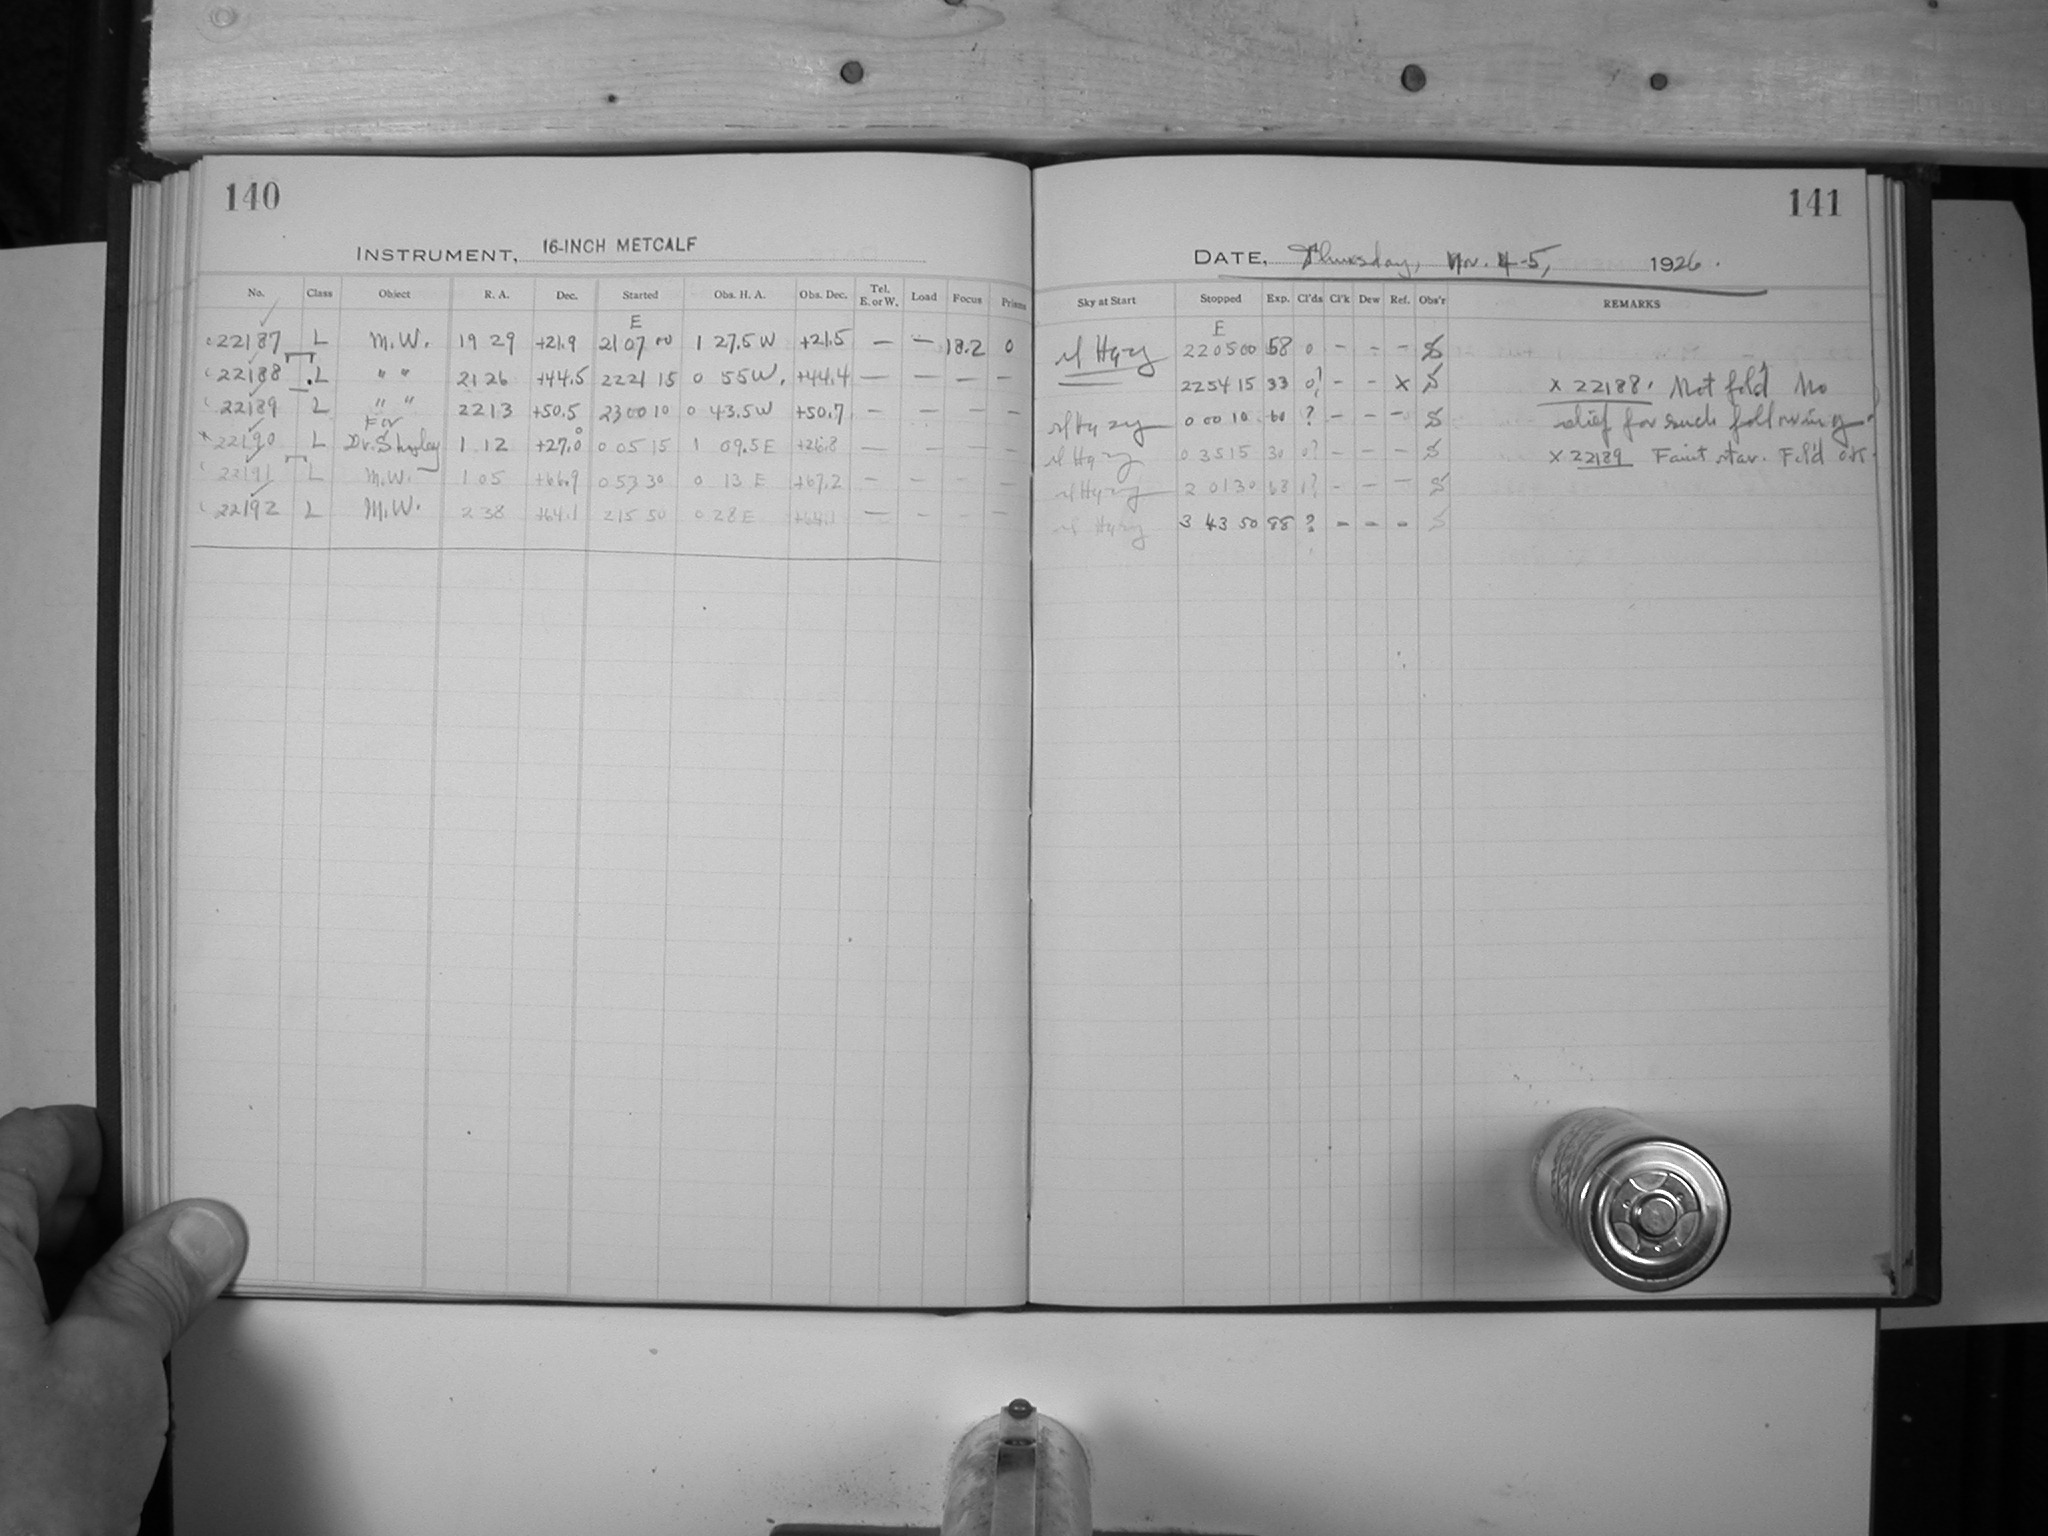 140
141
INSTRUMENT, 16-INCH METCALF
DATE, Thursday, Nov. 4-5, 1926.
No. Class Object R. A. Dec. Started Obs. H. A. Obs. Dec. Tel. E. or W. Load Focus Prisms
Sky at Start Stopped Exp. Cl'ds Cl'k Dew Ref. Obs'r REMARKS
E
E
22187 L M.W. 19 29 +21.9 21 07 00 1 27.5 W +21.5 — — 18.2 0
sl Hazy 22 05 00 58 0 - - - S
22188 L " " 21 26 +44.5 22 21 15 0 55 W. +44.4 — — — —
22 54 15 33 0? - - x S x 22188. Not fol'd No
22189 L " " 22 13 +50.5 23 00 10 0 43.5 W +50.7 — — — —
sl Hazy 0 00 10 60 ? - - - S relief for such following.
For
22190 L Dr. Shapley 1 12 +27.0 0 05 15 1 09.5 E +26.8 — — — —
sl Hazy 0 35 15 30 0? - - - S x 22189 Faint star. Fol'd OK.
22191 L M.W. 1 05 +66.9 0 53 30 0 13 E +67.2 — — — —
sl Hazy 2 01 30 68 1? - - - S
22192 L M.W. 2 38 +64.1 2 15 50 0 28 E +64.1 — — — —
sl Hazy 3 43 50 88 ? - - - S